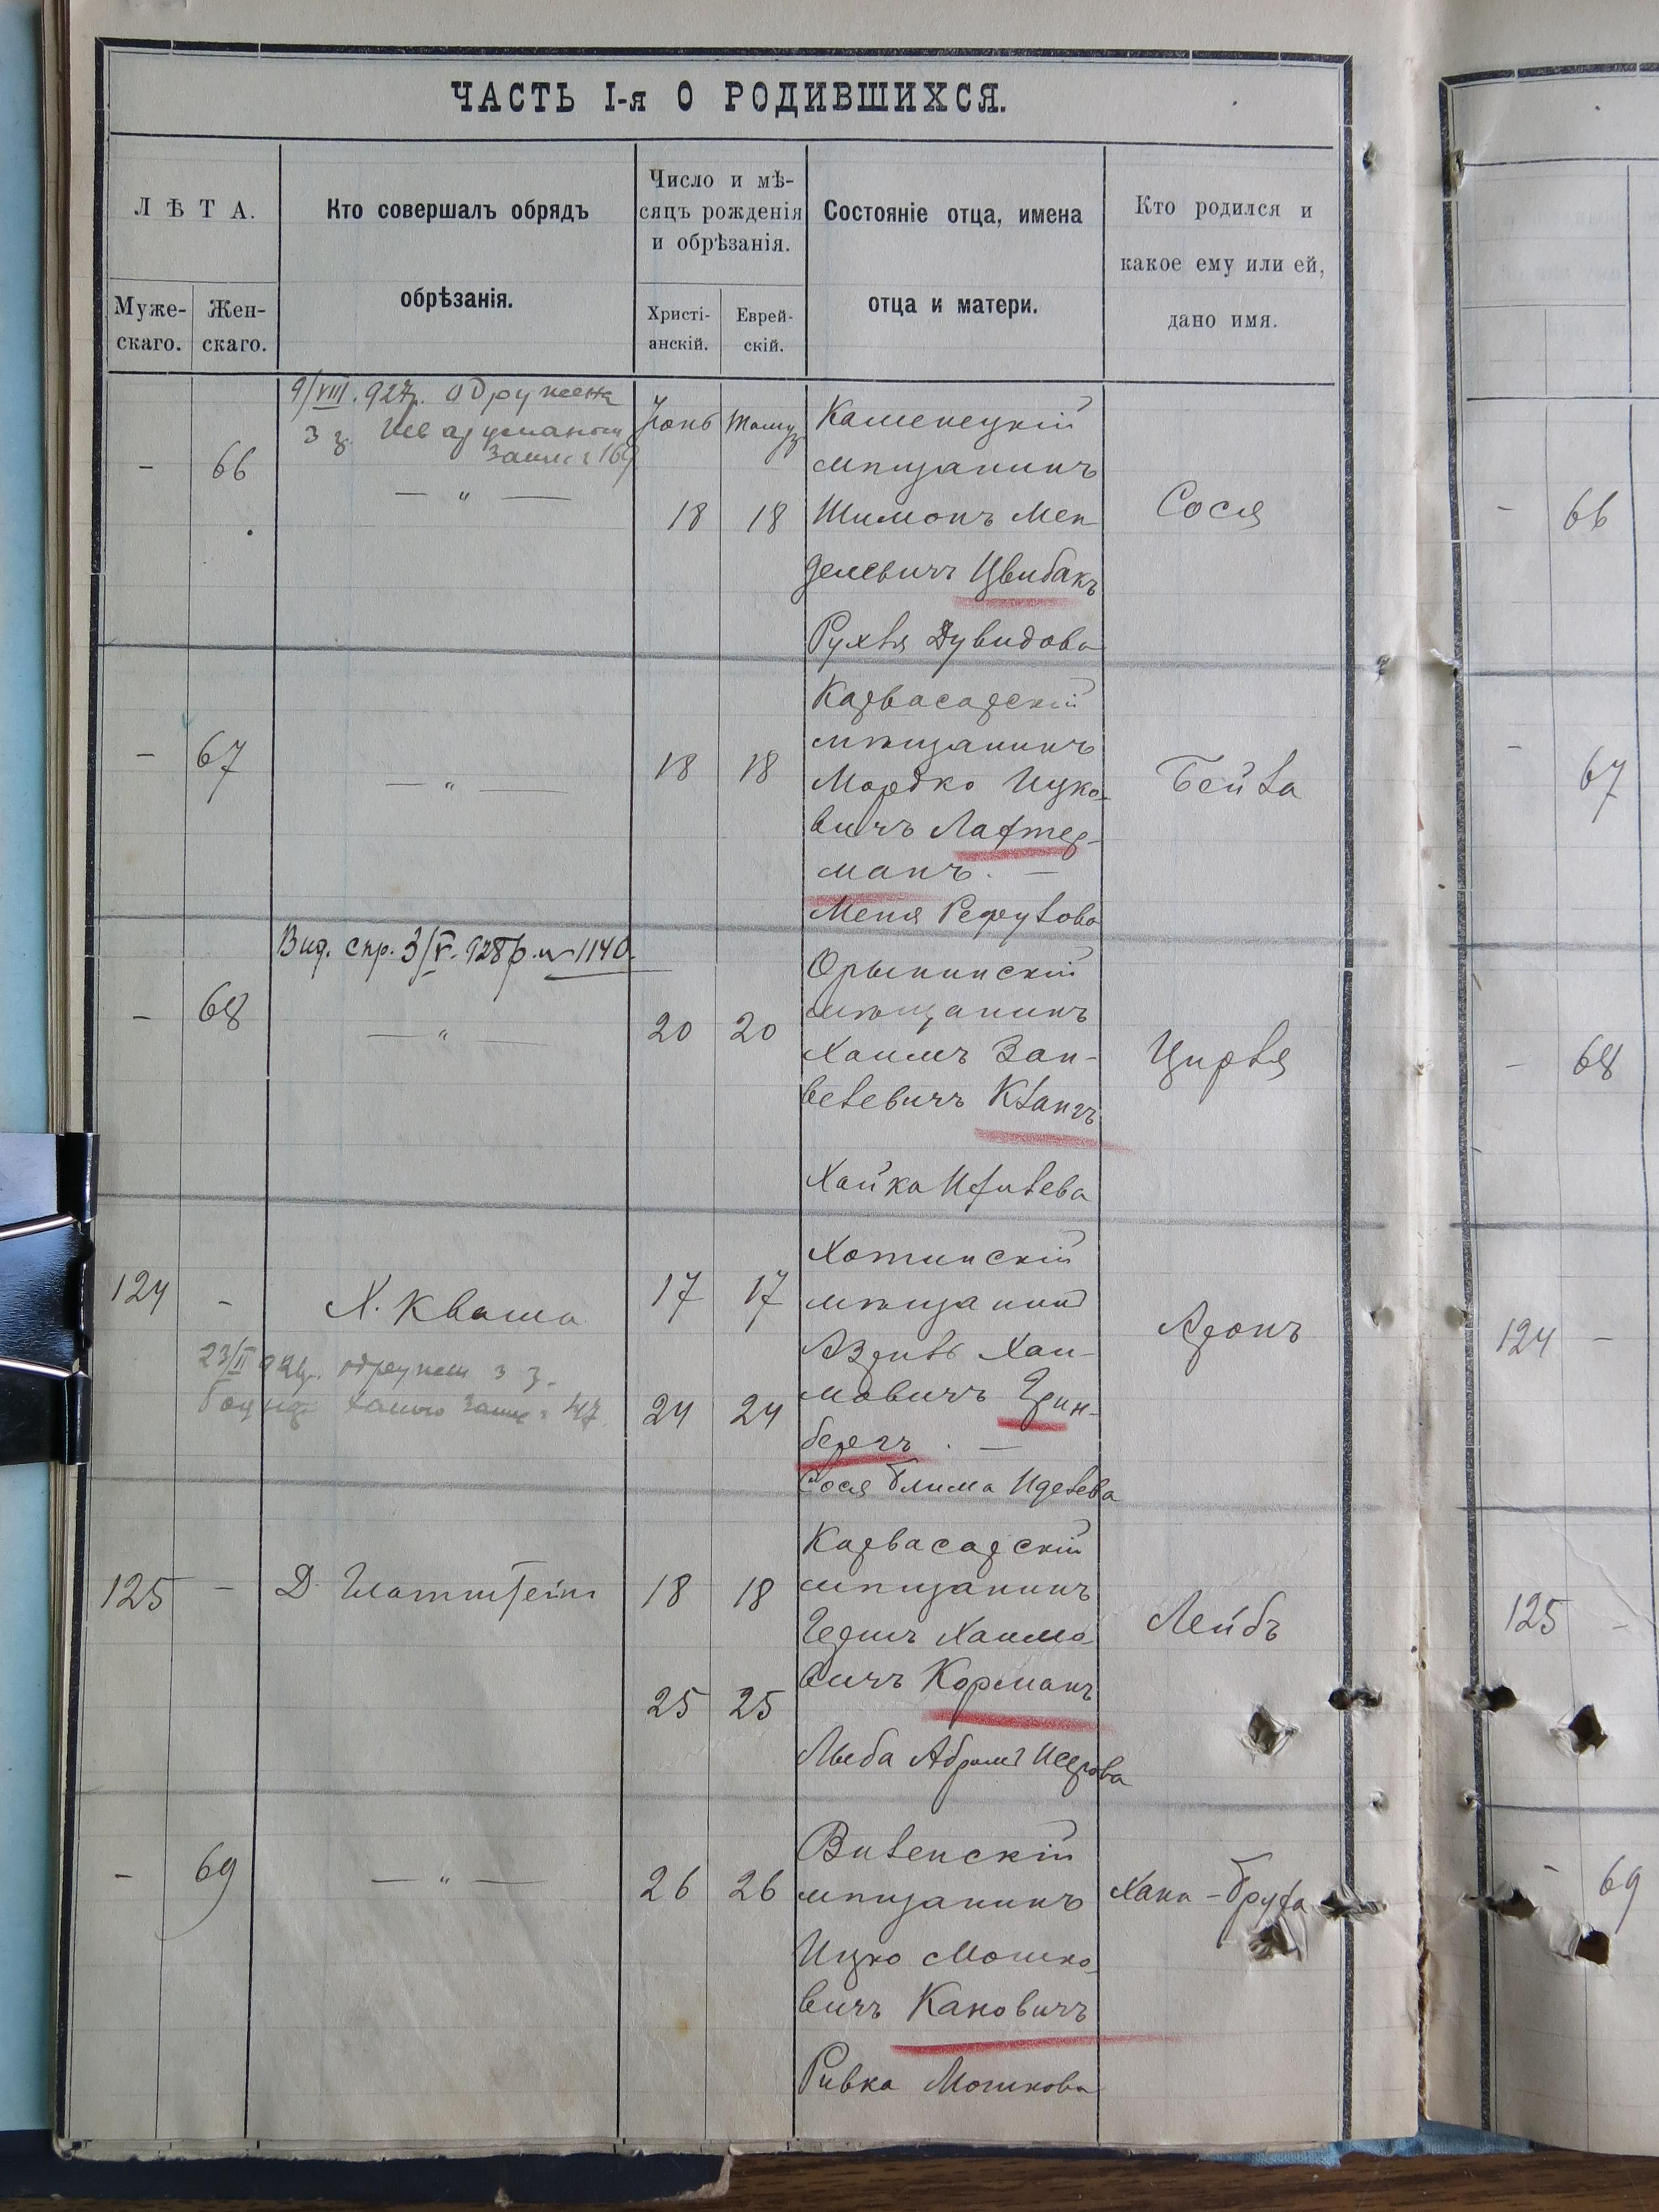 ЧАСТЬ I-я О РОДИВШИХСЯ.
ЛѢТА.
Муже-
скаго.
Жен-
скаго.
Кто совершалъ обрядъ
обрѣзанія.
Число и мѣ-
сяцъ рожденія
и обрѣзанія.
Христі-
анскій.
Еврей-
скій.
Состояніе отца, имена
отца и матери.
Кто родился и
какое ему или ей,
дано имя.
9/VIII. 927р. одружена
з г.
Запис 169
- 66
— " —
Іюнь Тамуз
18 18
Каменецкій
мѣщанинъ
Шимонъ Мен-
делевичъ Цвибакъ
Рухля Дувидова
Сося
- 66
- 67
— " —
18 18
Карвасарскій
мѣщанинъ
Мордко Ицко-
вичъ Лафтер-
манъ. —
Меня
Бейла
- 67
Вид. спр. 3/V. 928р. № 1140.
- 68
— " —
20 20
Орынинскій
мѣщанинъ
Хаимъ Зан-
велевичъ Клангъ
Хайка
Цирля
- 68
124 -
Х. Кваша
23/II одружен з г.
Запис 47
17 17
24 24
Хотинскій
мѣщанинъ
Азриль Хаи-
мовичъ Грин-
бергъ. —
Сося Блима Иделева
Аронъ
124 -
125 -
Д.
18 18
25 25
Карвасарскій
мѣщанинъ
Гершъ Хаимо-
вичъ Корманъ
Лыба Абрамъ Исерова
Лейбъ
125 -
- 69
— " —
26 26
Виленскій
мѣщанинъ
Ицко Мошко-
вичъ Кановичъ
Ривка Мошкова
Хана-Бруха
- 69